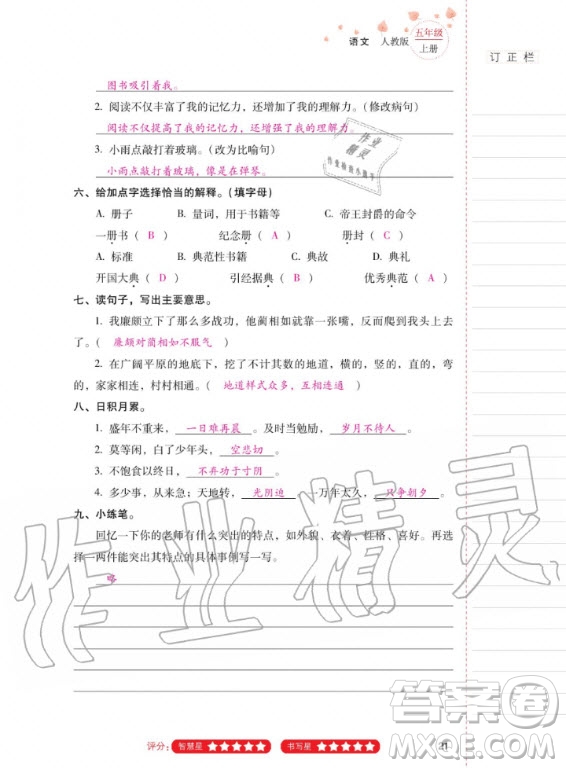 语文 人教版 五年级
上册
订正栏
图书吸引着我。
2. 阅读不仅丰富了我的记忆力，还增加了我的理解力。（修改病句）
阅读不仅提高了我的记忆力，还增强了我的理解力。
3. 小雨点敲打着玻璃。（改为比喻句）
小雨点敲打着玻璃，像是在弹琴。
六、给加点字选择恰当的解释。（填字母）
A. 册子 B. 量词，用于书籍等 C. 帝王封爵的命令
一册书（ B ） 纪念册（ A ） 册封（ C ）
A. 标准 B. 典范性书籍 C. 典故 D. 典礼
开国大典（ D ） 引经据典（ C ） 优秀典范（ A ）
七、读句子，写出主要意思。
1. 我廉颇立下了那么多战功，他蔺相如就靠一张嘴，反而爬到我上头去了。
（ 廉颇对蔺相如不服气 ）
2. 在广阔平原的地底下，挖了不计其数的地道，横的，竖的，直的，弯
的，家家相连，村村相通。（ 地道样式众多，互相连通 ）
八、日积月累。
1. 盛年不重来，一日难再晨。及时当勉励，岁月不待人。
2. 莫等闲，白了少年头，空悲切。
3. 不饱食以终日，不弃功于寸阴。
4. 多少事，从来急；天地转，光阴迫。一万年太久，只争朝夕。
九、小练笔。
回忆一下你的老师有什么突出的特点，如外貌、衣着、性格、喜好。再选
择一两件能突出其特点的具体事例写一写。
略
评分： 智慧星 ★★★★★ 书写星 ★★★★★ 21
作业精灵
答案圈